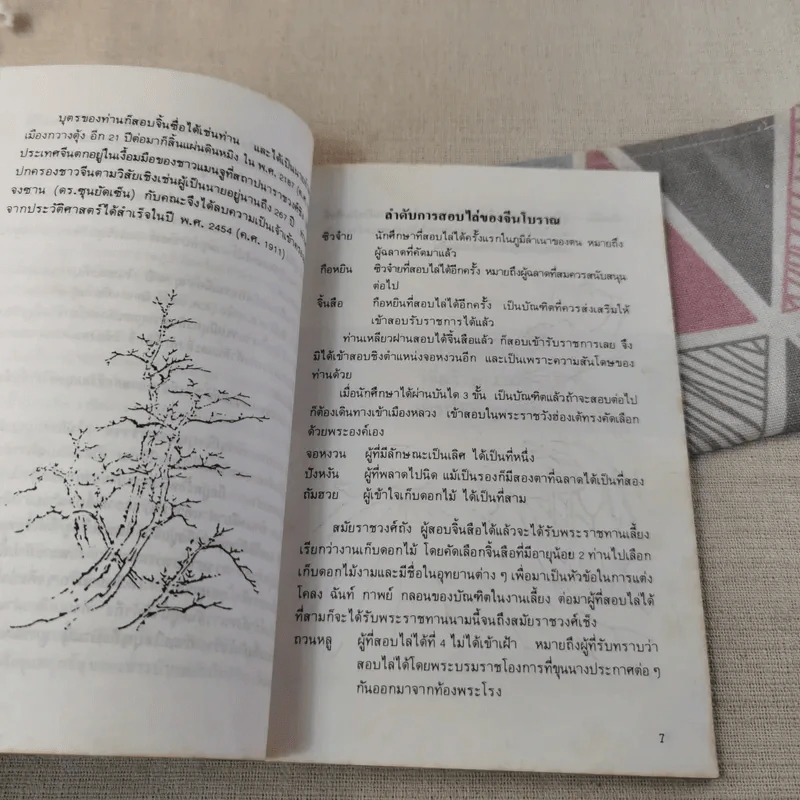 บุตรของท่านก็สอบจิ้นซื่อได้เช่นท่าน และได้เป็นนาย
เมืองกวางตุ้ง อีก 21 ปีต่อมาก็สิ้นแผ่นดินหมิง ใน พ.ศ. 2187
ประเทศจีนตกอยู่ในเงื้อมมือของชาวแมนจูที่สถาปนาราชวงศ์
ปกครองชาวจีนตามวิสัยเชิงเช่นผู้เป็นนายอยู่นานถึง 267 ปี
จงซาน (ดร.ซุนยัดเซ็น) กับคณะจึงได้ลบความเป็นเจ้าเข้า
จากประวัติศาสตร์ได้สำเร็จในปี พ.ศ. 2454 (ค.ศ. 1911)
ลำดับการสอบไล่ของจีนโบราณ
ซิวจ๋าย นักศึกษาที่สอบไล่ได้ครั้งแรกในภูมิลำเนาของตน หมายถึง
ผู้ฉลาดที่คัดมาแล้ว
กือหยิน ซิวจ๋ายที่สอบไล่ได้อีกครั้ง หมายถึงผู้ฉลาดที่สมควรสนับสนุน
ต่อไป
จิ้นสือ กือหยินที่สอบไล่ได้อีกครั้ง เป็นบัณฑิตที่ควรส่งเสริมให้
เข้าสอบรับราชการได้แล้ว
ท่านเหลี่ยวฝานสอบได้จิ้นสือแล้ว ก็สอบเข้ารับราชการเลย จึง
มิได้เข้าสอบชิงตำแหน่งจอหงวนอีก และเป็นเพราะความสันโดษของ
ท่านด้วย
เมื่อนักศึกษาได้ผ่านบันได 3 ขั้น เป็นบัณฑิตแล้วถ้าจะสอบต่อไป
ก็ต้องเดินทางเข้าเมืองหลวง เข้าสอบในพระราชวังฮ่องเต้ทรงคัดเลือก
ด้วยพระองค์เอง
จอหงวน ผู้ที่มีลักษณะเป็นเลิศ ได้เป็นที่หนึ่ง
ปังหงัน ผู้ที่พลาดไปนิด แม้เป็นรองก็มีสองตาที่ฉลาดได้เป็นที่สอง
ถัมฮวย ผู้เข้าใจเก็บดอกไม้ ได้เป็นที่สาม
สมัยราชวงศ์ถัง ผู้สอบจิ้นสือได้แล้วจะได้รับพระราชทานเลี้ยง
เรียกว่างานเก็บดอกไม้ โดยคัดเลือกจิ้นสือที่มีอายุน้อย 2 ท่านไปเลือก
เก็บดอกไม้งามและมีชื่อในอุทยานต่าง ๆ เพื่อมาเป็นหัวข้อในการแต่ง
โคลง ฉันท์ กาพย์ กลอนของบัณฑิตในงานเลี้ยง ต่อมาผู้ที่สอบไล่ได้
ที่สามก็จะได้รับพระราชทานนามนี้จนถึงสมัยราชวงศ์เช็ง
ถวนหลู ผู้ที่สอบไล่ได้ที่ 4 ไม่ได้เข้าเฝ้า หมายถึงผู้ที่รับทราบว่า
สอบไล่ได้โดยพระบรมราชโองการที่ขุนนางประกาศต่อ ๆ
กันออกมาจากท้องพระโรง
7